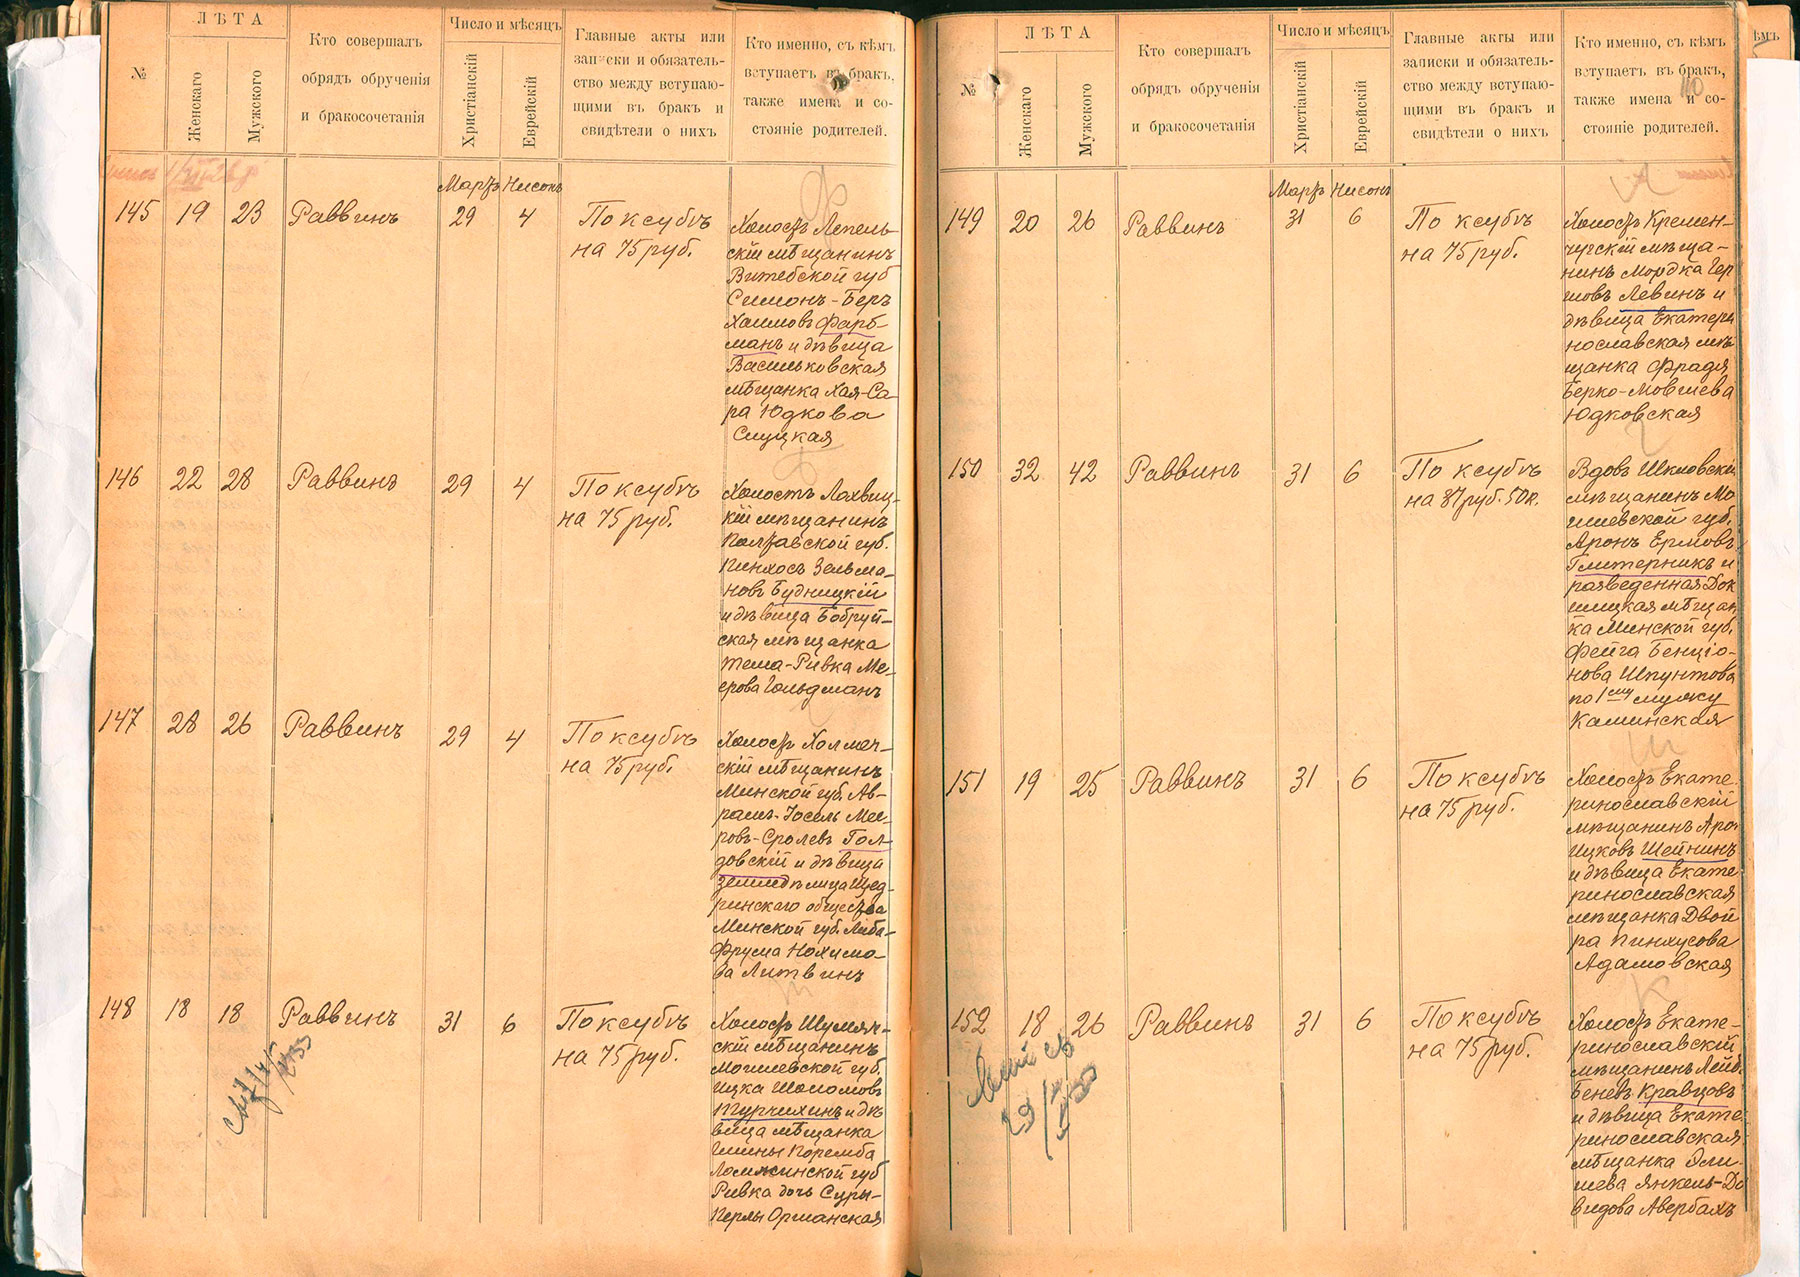 №
ЛѢТА
Женскаго
Мужского
Кто совершалъ
обрядъ обрученія
и бракосочетанія
Число и мѣсяцъ
Христіанскій
Еврейскій
Главные акты или
записки и обязатель-
ство между вступаю-
щими въ бракъ и
свидѣтели о нихъ
Кто именно, съ кѣмъ
вступаетъ въ бракъ,
также имена и со-
стояніе родителей.
Мартъ Нисонъ
145 19 23 Раввинъ 29 4
По ксубѣ
на 75 руб.
Холостъ Лепель-
скій мѣщанинъ
Витебской губ
Симонъ-Беръ
Хаимовъ Фарб-
манъ и дѣвица
Васильковская
мѣщанка Хая-Са-
ра Юдкова
Слуцкая
146 22 28 Раввинъ 29 4
По ксубѣ
на 75 руб.
Холостъ Лохвиц-
кій мѣщанинъ
Полтавской губ.
Пинхосъ Зельма-
новъ Будницкій
и дѣвица Бобруй-
ская мѣщанка
Тема-Ривка Ме-
ерова Гольдманъ
147 28 26 Раввинъ 29 4
По ксубѣ
на 75 руб.
Холостъ Холмеч-
скій мѣщанинъ
Минской губ. Ав-
рамъ-Іосель Мее-
ровъ-Сролевъ Гол-
довскій и дѣвица
земледѣлица Щед-
ринскаго общества
Минской губ. Либа-
Фрума Нохимо-
ва Литвинъ
148 18 18 Раввинъ 31 6
По ксубѣ
на 75 руб.
Холостъ Шумяч-
скій мѣщанинъ
Могилевской губ.
Ицка Шоломовъ
и дѣ-
вица мѣщанка
Гмины Поремба
Ломжинской губ
Ривка дочь Суры-
Перлы Оршанская
№
ЛѢТА
Женскаго
Мужского
Кто совершалъ
обрядъ обрученія
и бракосочетанія
Число и мѣсяцъ
Христіанскій
Еврейскій
Главные акты или
записки и обязатель-
ство между вступаю-
щими въ бракъ и
свидѣтели о нихъ
Кто именно, съ кѣмъ
вступаетъ въ бракъ,
также имена и со-
стояніе родителей.
110
Мартъ Нисонъ
149 20 26 Раввинъ 31 6
По ксубѣ
на 75 руб.
Холостъ Кремен-
чугскій мѣща-
нинъ Мордка Гер
шовъ Левинъ и
дѣвица Екатери
нославская мѣ
щанка Фрадя
Берко-Мовшева
Юдковская
150 32 42 Раввинъ 31 6
По ксубѣ
на 87 руб. 50 к.
Вдовъ Шкловскій
мѣщанинъ Мо
гилевской губ.
Аронъ
Глитерникъ и
разведенная Док
шицкая мѣщан
ка Минской губ.
Фейга Бенціо-
нова Шпунтова
по 1му мужу
Каминская
151 19 25 Раввинъ 31 6
По ксубѣ
на 75 руб.
Холостъ Екате
ринославскій
мѣщанинъ Аро
Ицковъ Шейнинъ
и дѣвица Екате
ринославская
мѣщанка Двой
ра Пинхусова
Адамовская
152 18 26 Раввинъ 31 6
По ксубѣ
на 75 руб.
Холостъ Екате-
ринославскій
мѣщанинъ Лейб
Беневъ Кравцовъ
и дѣвица Екате
ринославская
мѣщанка Эли-
шева Янкель-До
видова Авербахъ